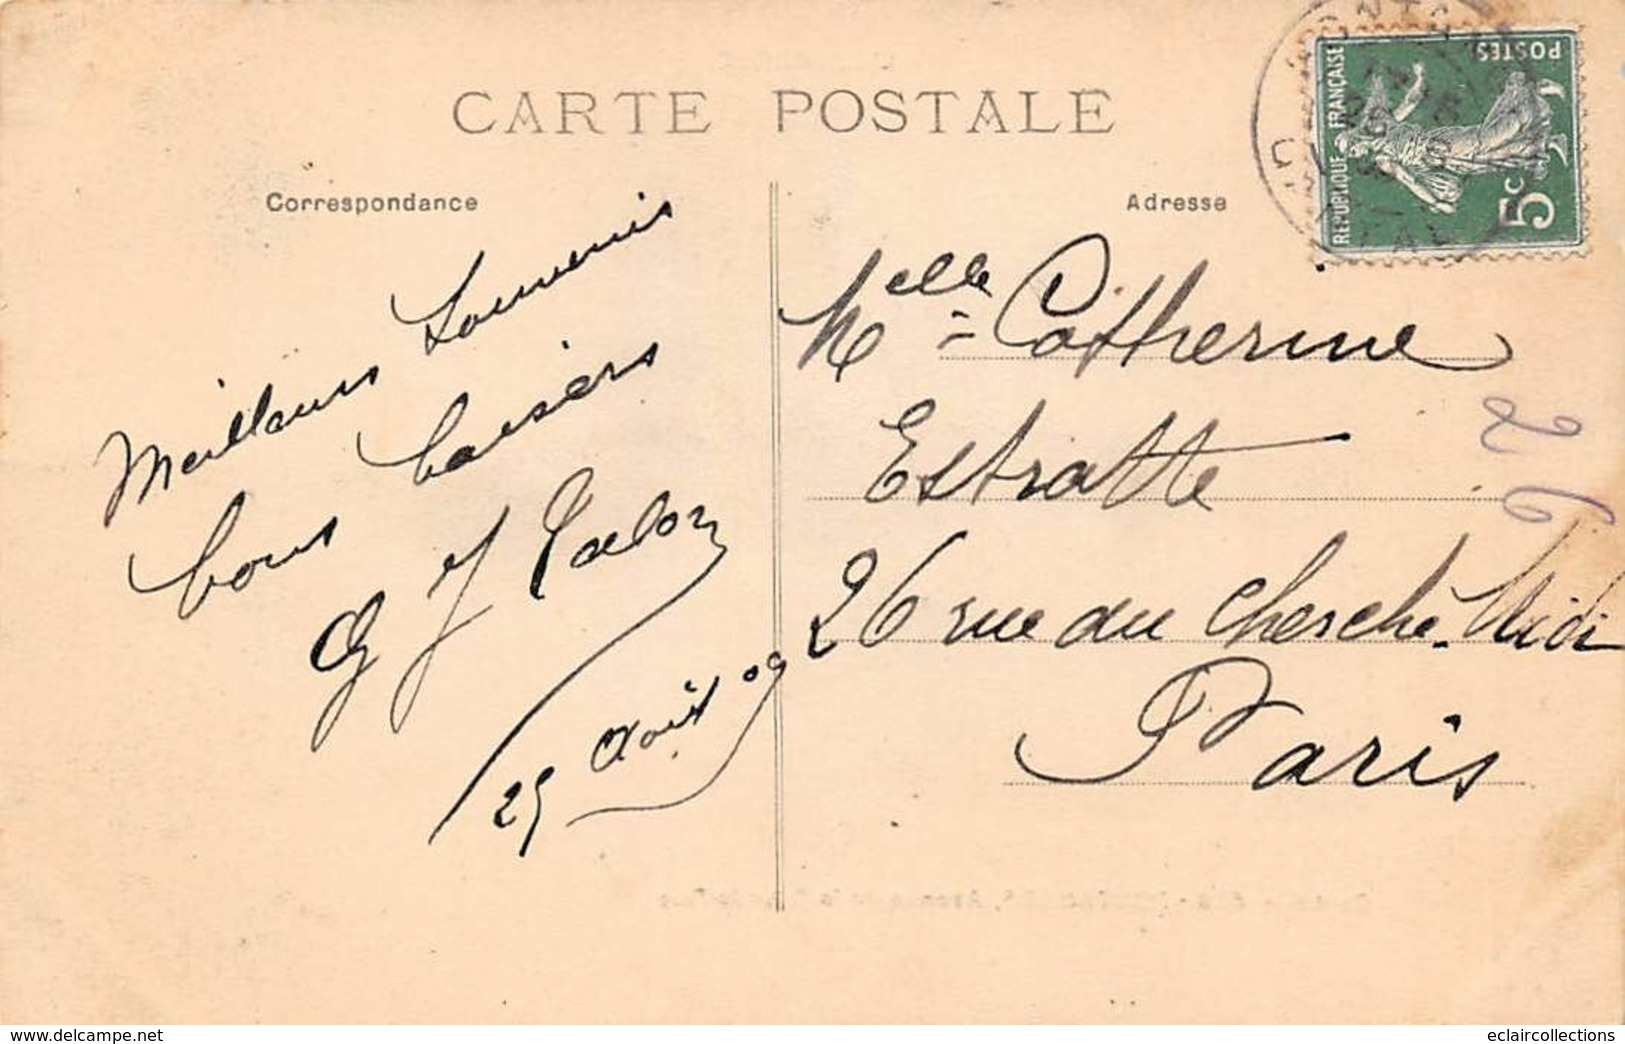 CARTE POSTALE
Correspondance
Meilleurs Souvenirs
bons baisers
G et J
25 Août 09
Adresse
REPUBLIQUE FRANÇAISE
POSTES
5c
Melle Catherine
Estratte
26 rue du Cherche-Midi
Paris
26
www.delcampe.net
eclaircollections